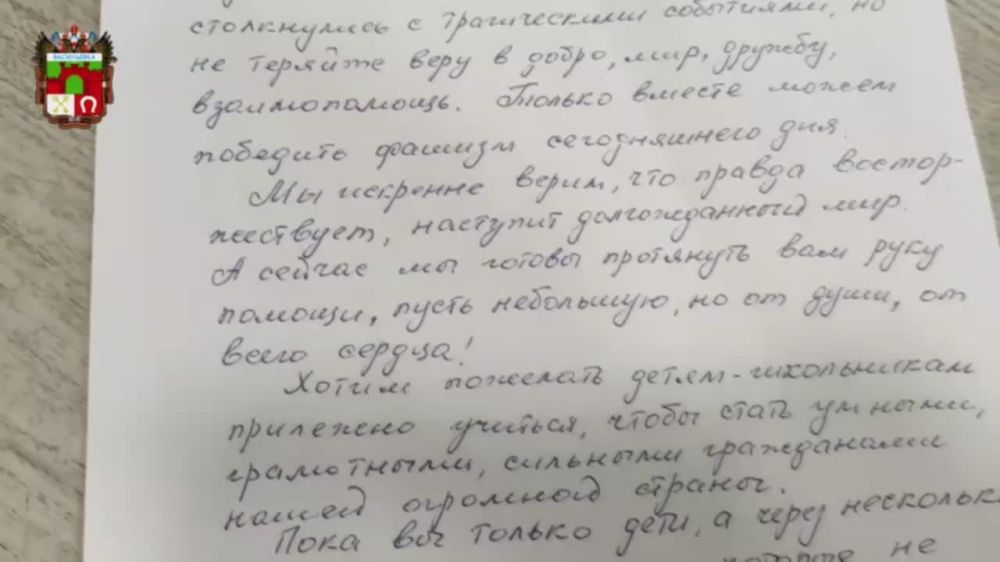 ВАСИЛЬЕВКА
столкнулись с трагическими событиями, но
не теряйте веру в добро, мир, дружбу,
взаимопомощь. Только вместе можем
победить фашизм сегодняшнего дня.
Мы искренне верим, что правда востор-
жествует, наступит долгожданный мир.
А сейчас мы готовы протянуть вам руку
помощи, пусть небольшую, но от души, от
всего сердца!
Хотим пожелать детям-школьникам
прилежно учиться, чтобы стать умными,
грамотными, сильными гражданами
нашей огромной страны.
Пока вы только дети, а через нескольк
которые не